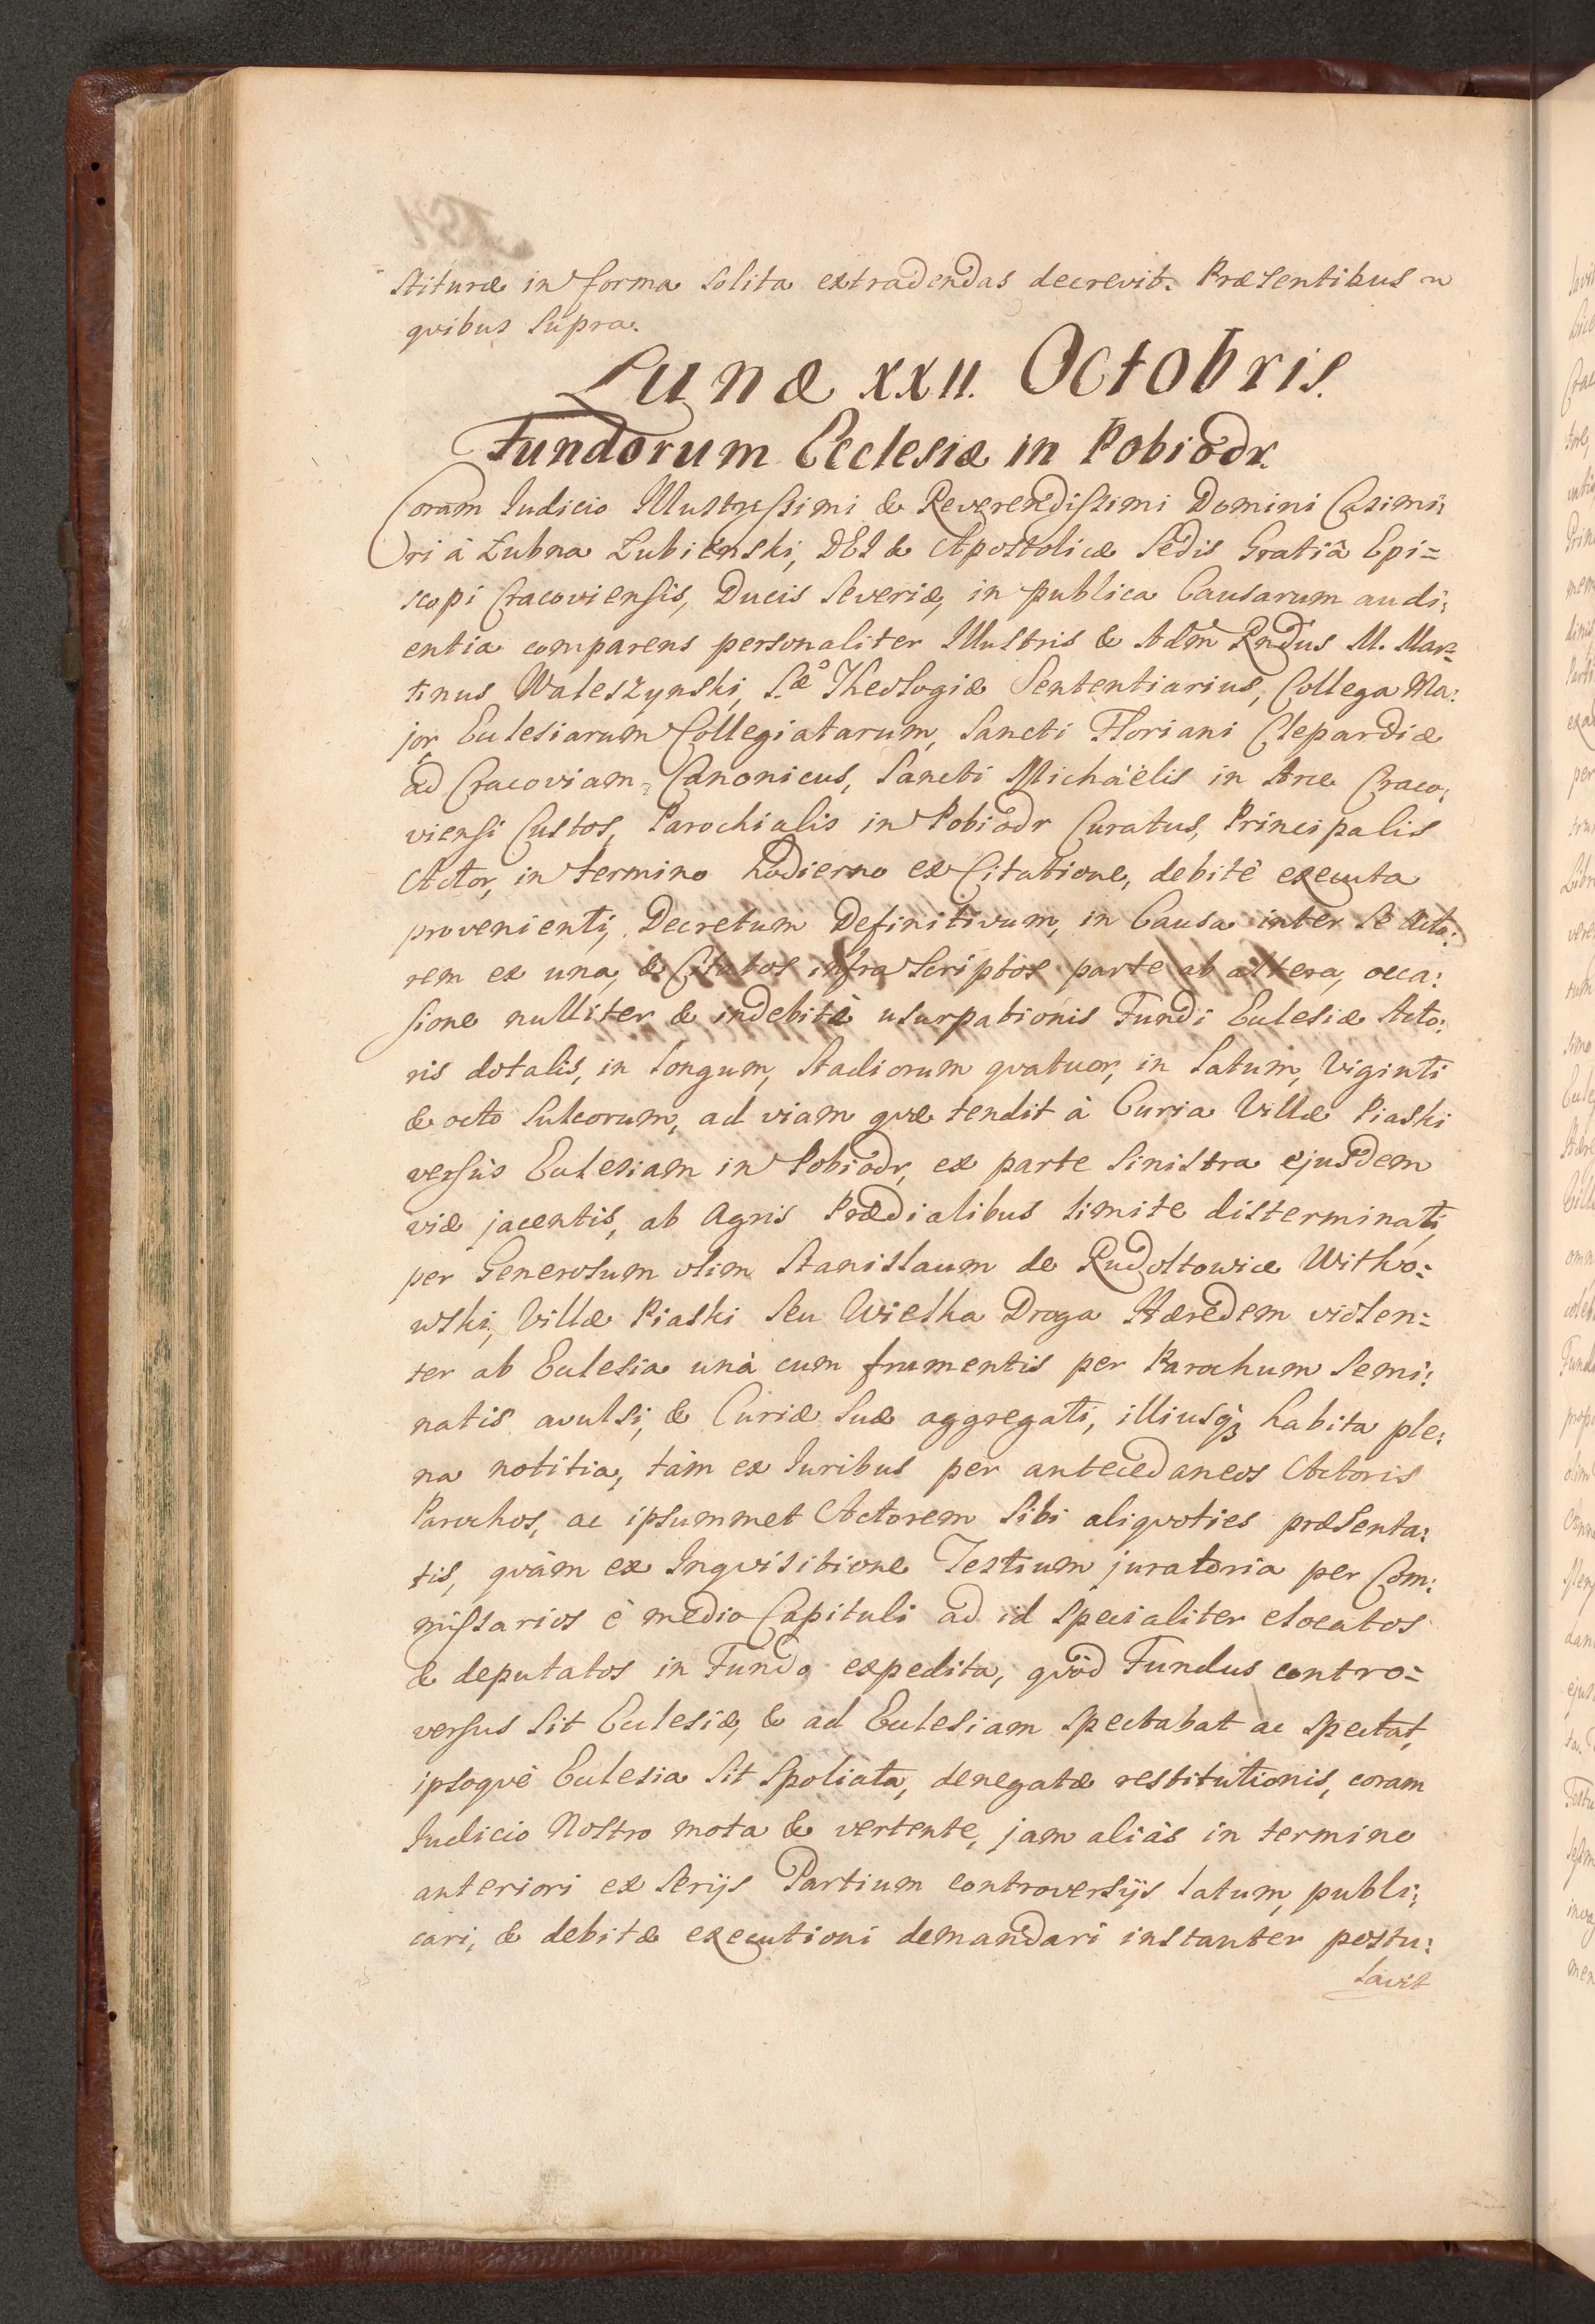 stituræ in forma solita extradendas decrevit. Præsentibus
quibus supra.
Lunæ XXII. Octobris.
Fundorum Ecclesiæ in Pobiodr.
Coram Iudicio Illustrissimi & Reverendissimi Domini Casimi:
ri à Łubna Łubieński, DEI & Apostolicæ Sedis Gratiâ Epi=
scopi Cracoviensis, Ducis Severiæ, in publica Causarum audi:
entia comparens personaliter Illustris & Adm Rndus M. Mar=
tinus Waleszynski, S.æ Theologiæ Sententiarius, Collega Ma:
jor, Ecclesiarum Collegiatarum, Sancti Floriani Clepardiæ
ad Cracoviam, Canonicus, Sancti Michaëlis in Arce Craco:
viensi Custos, Parochialis in Pobiodr Curatus, Principalis
Actor, in termino hodierno ex Citatione, debitè executa
provenienti, Decretum Definitivum, in Causa inter se Acto:
rem ex una, & Citatos infra Scriptos parte ab altera, occa:
sione nulliter & indebitè usurpationis Fundi Ecclesiæ Acto:
ris dotalis, in longum, Stadiorum quatuor, in latum, Viginti
& octo Sulcorum, ad viam quæ tendit à Curia Villæ Piaski
versùs Ecclesiam in Pobiodr, ex parte Sinistra ejusdem
viæ jacentis, ab Agris Prædialibus limite disterminati,
per Generosum olim Stanislaum de Rudoltowice Witko:
wski, Villæ Piaski seu Wielka Droga Hæredem violen=
ter ab Ecclesia unà cum frumentis per Parochum Semi:
natis avulsi, & Curiæ Suæ aggregati, illiusq3 habita ple:
na notitia, tàm ex Iuribus per antecedaneos Actoris
Parochos, ac ipsummet Actorem Sibi aliquoties præsenta:
tis, quàm ex Inquisitione Testium juratoria per Com:
missarios è medio Capituli ad id Specialiter elocatos
& deputatos in Fundo expedita, quòd Fundus contro=
versus Sit Ecclesiæ, & ad Ecclesiam Spectabat ac Spectat,
ipsoquè Ecclesia Sit Spoliata, denegatæ restitutionis, coram
Iudicio Nostro mota & vertente, jam aliàs in termino
anteriori ex Serijs Partium controversijs latum, publi:
cari, & debitæ executioni demandari instanter postu:
lavit